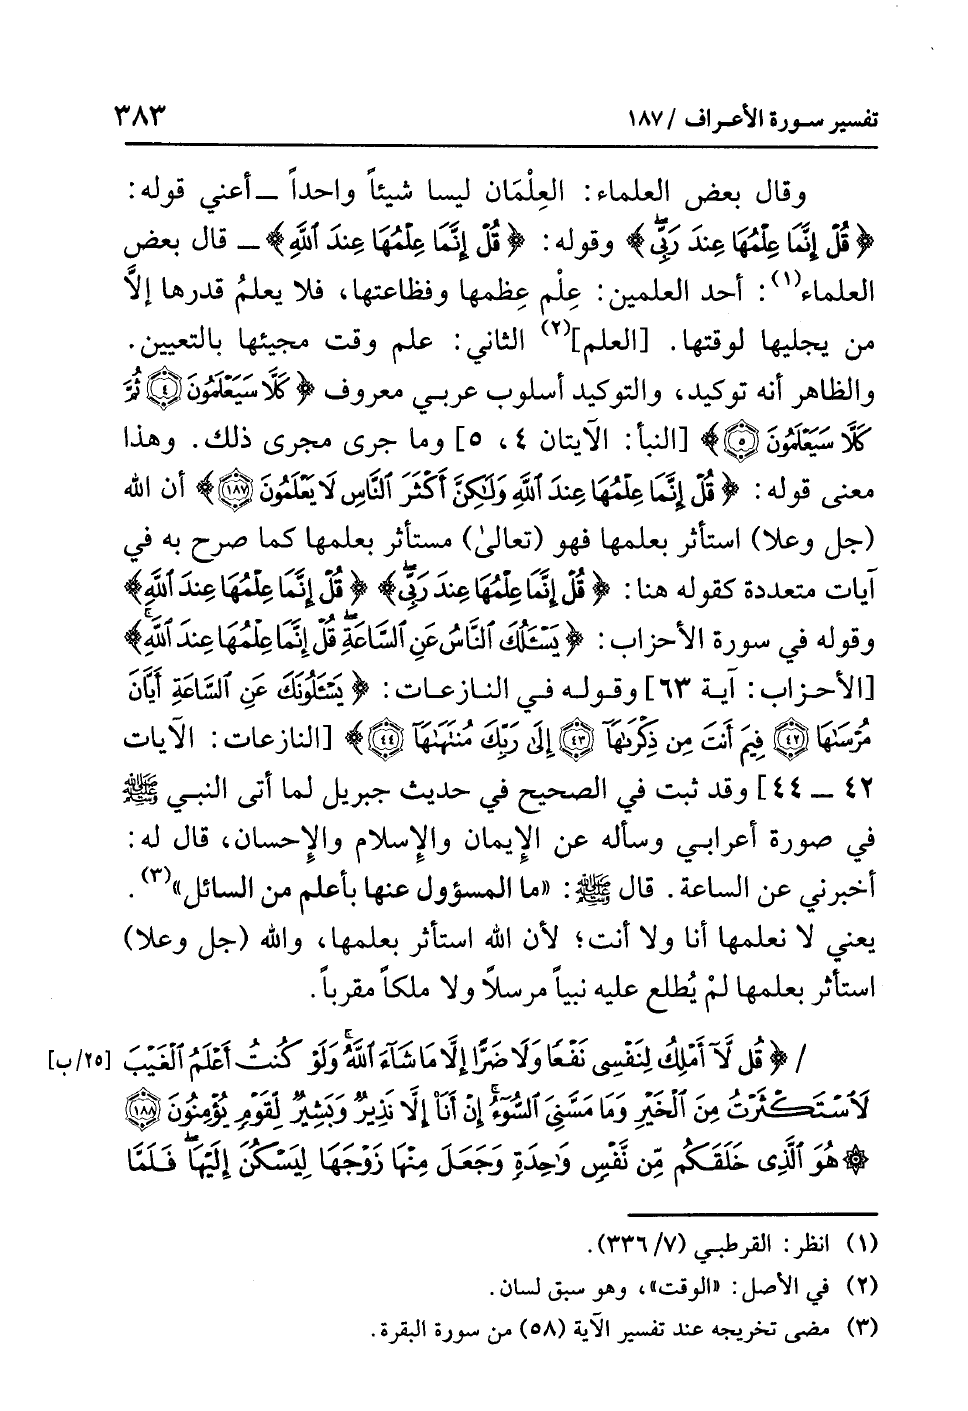 تفسير سـورة الأعـراف / ١٨٧
٣٨٣
وقال بعض العلماء: العِلْمَان ليسا شيئاً واحداً ــ أعني قوله:
﴿ قُلْ إِنَّمَا عِلْمُهَا عِندَ رَبِّيۖ ﴾ وقوله: ﴿ قُلْ إِنَّمَا عِلْمُهَا عِندَ ٱللَّهِ ﴾ ــ قال بعض
العلماء(١): أحد العلمين: عِلْم عِظمها وفظاعتها، فلا يعلمُ قدرها إلَّا
من يجليها لوقتها. [العلم](٢) الثاني: علم وقت مجيئها بالتعيين.
والظاهر أنه توكيد، والتوكيد أسلوب عربي معروف ﴿ كَلَّا سَيَعْلَمُونَ ٤ ثُمَّ
كَلَّا سَيَعْلَمُونَ ٥ ﴾ [النبأ: الآيتان ٤، ٥] وما جرى مجرى ذلك. وهذا
معنى قوله: ﴿ قُلْ إِنَّمَا عِلْمُهَا عِندَ ٱللَّهِ وَلَٰكِنَّ أَكْثَرَ ٱلنَّاسِ لَا يَعْلَمُونَ ١٨٧ ﴾ أن الله
(جل وعلا) استأثر بعلمها فهو (تعالىٰ) مستأثر بعلمها كما صرح به في
آيات متعددة كقوله هنا: ﴿ قُلْ إِنَّمَا عِلْمُهَا عِندَ رَبِّيۖ ﴾ ﴿ قُلْ إِنَّمَا عِلْمُهَا عِندَ ٱللَّهِ ﴾
وقوله في سورة الأحزاب: ﴿ يَسْـَٔلُكَ ٱلنَّاسُ عَنِ ٱلسَّاعَةِۖ قُلْ إِنَّمَا عِلْمُهَا عِندَ ٱللَّهِۚ ﴾
[الأحـزاب: آيـة ٦٣] وقـولـه فـي النـازعـات: ﴿ يَسْـَٔلُونَكَ عَنِ ٱلسَّاعَةِ أَيَّانَ
مُرْسَىٰهَا ٤٢ فِيمَ أَنتَ مِن ذِكْرَىٰهَآ ٤٣ إِلَىٰ رَبِّكَ مُنتَهَىٰهَآ ٤٤ ﴾ [النازعات: الآيات
٤٢ ــ ٤٤] وقد ثبت في الصحيح في حديث جبريل لما أتى النبي ﷺ
في صورة أعرابي وسأله عن الإيمان والإسلام والإحسان، قال له:
أخبرني عن الساعة. قال ﷺ: «ما المسؤول عنها بأعلم من السائل»(٣).
يعني لا نعلمها أنا ولا أنت؛ لأن الله استأثر بعلمها، والله (جل وعلا)
استأثر بعلمها لمْ يُطلع عليه نبياً مرسلاً ولا ملكاً مقرباً.
/ ﴿ قُل لَّآ أَمْلِكُ لِنَفْسِى نَفْعًا وَلَا ضَرًّا إِلَّا مَا شَآءَ ٱللَّهُۚ وَلَوْ كُنتُ أَعْلَمُ ٱلْغَيْبَ [٢٥/ب]
لَٱسْتَكْثَرْتُ مِنَ ٱلْخَيْرِ وَمَا مَسَّنِىَ ٱلسُّوٓءُۚ إِنْ أَنَا۠ إِلَّا نَذِيرٌ وَبَشِيرٌ لِّقَوْمٍ يُؤْمِنُونَ ١٨٨
۞ هُوَ ٱلَّذِى خَلَقَكُم مِّن نَّفْسٍ وَٰحِدَةٍ وَجَعَلَ مِنْهَا زَوْجَهَا لِيَسْكُنَ إِلَيْهَاۖ فَلَمَّا
(١) انظر: القرطبـي (٣٣٦/٧).
(٢) في الأصل: «الوقت»، وهو سبق لسان.
(٣) مضى تخريجه عند تفسير الآية (٥٨) من سورة البقرة.